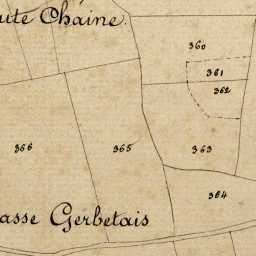 ute Chaine
360
361
362
366
365
363
364
asse Gerbetais